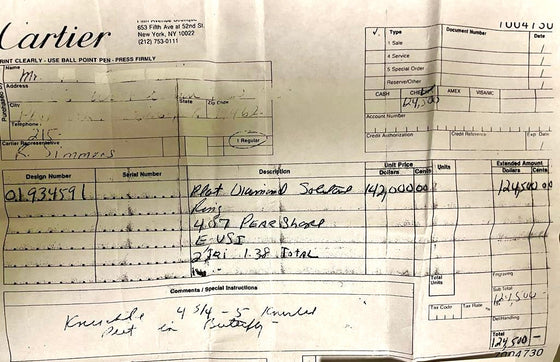 Cartier
653 Fifth Ave at 52nd St.
New York, NY 10022
(212) 753-0111
PRINT CLEARLY - USE BALL POINT PEN - PRESS FIRMLY
Name
Mr.
Address
City
State
Zip Code
Telephone
215
Cartier Representative
1 Regular
Simmons
✓
Type
Document Number
1 Sale
4 Service
5 Special Order
Reserve/Other
CASH
CHECK
AMEX
VISA/MC
124,500
Account Number
Credit Authorization
Credit Reference
Exp. Date
Design Number
Serial Number
Description
Unit Price
Dollars
Cents
Units
Extended Amount
Dollars
Cents
01934591
Plat Diamond Solitaire
142,000 00
124,500 00
Ring
4.07 Pear Shape
E-VS1
1.38 Total
Total Units
Engraving
Comments / Special Instructions
Sub Total
124,500
Knuckle 4 3/4 - 5 Knuckle
in Butterfly
Tax Code
Tax Rate
Del/Handling
Total
124,500 -
2004730